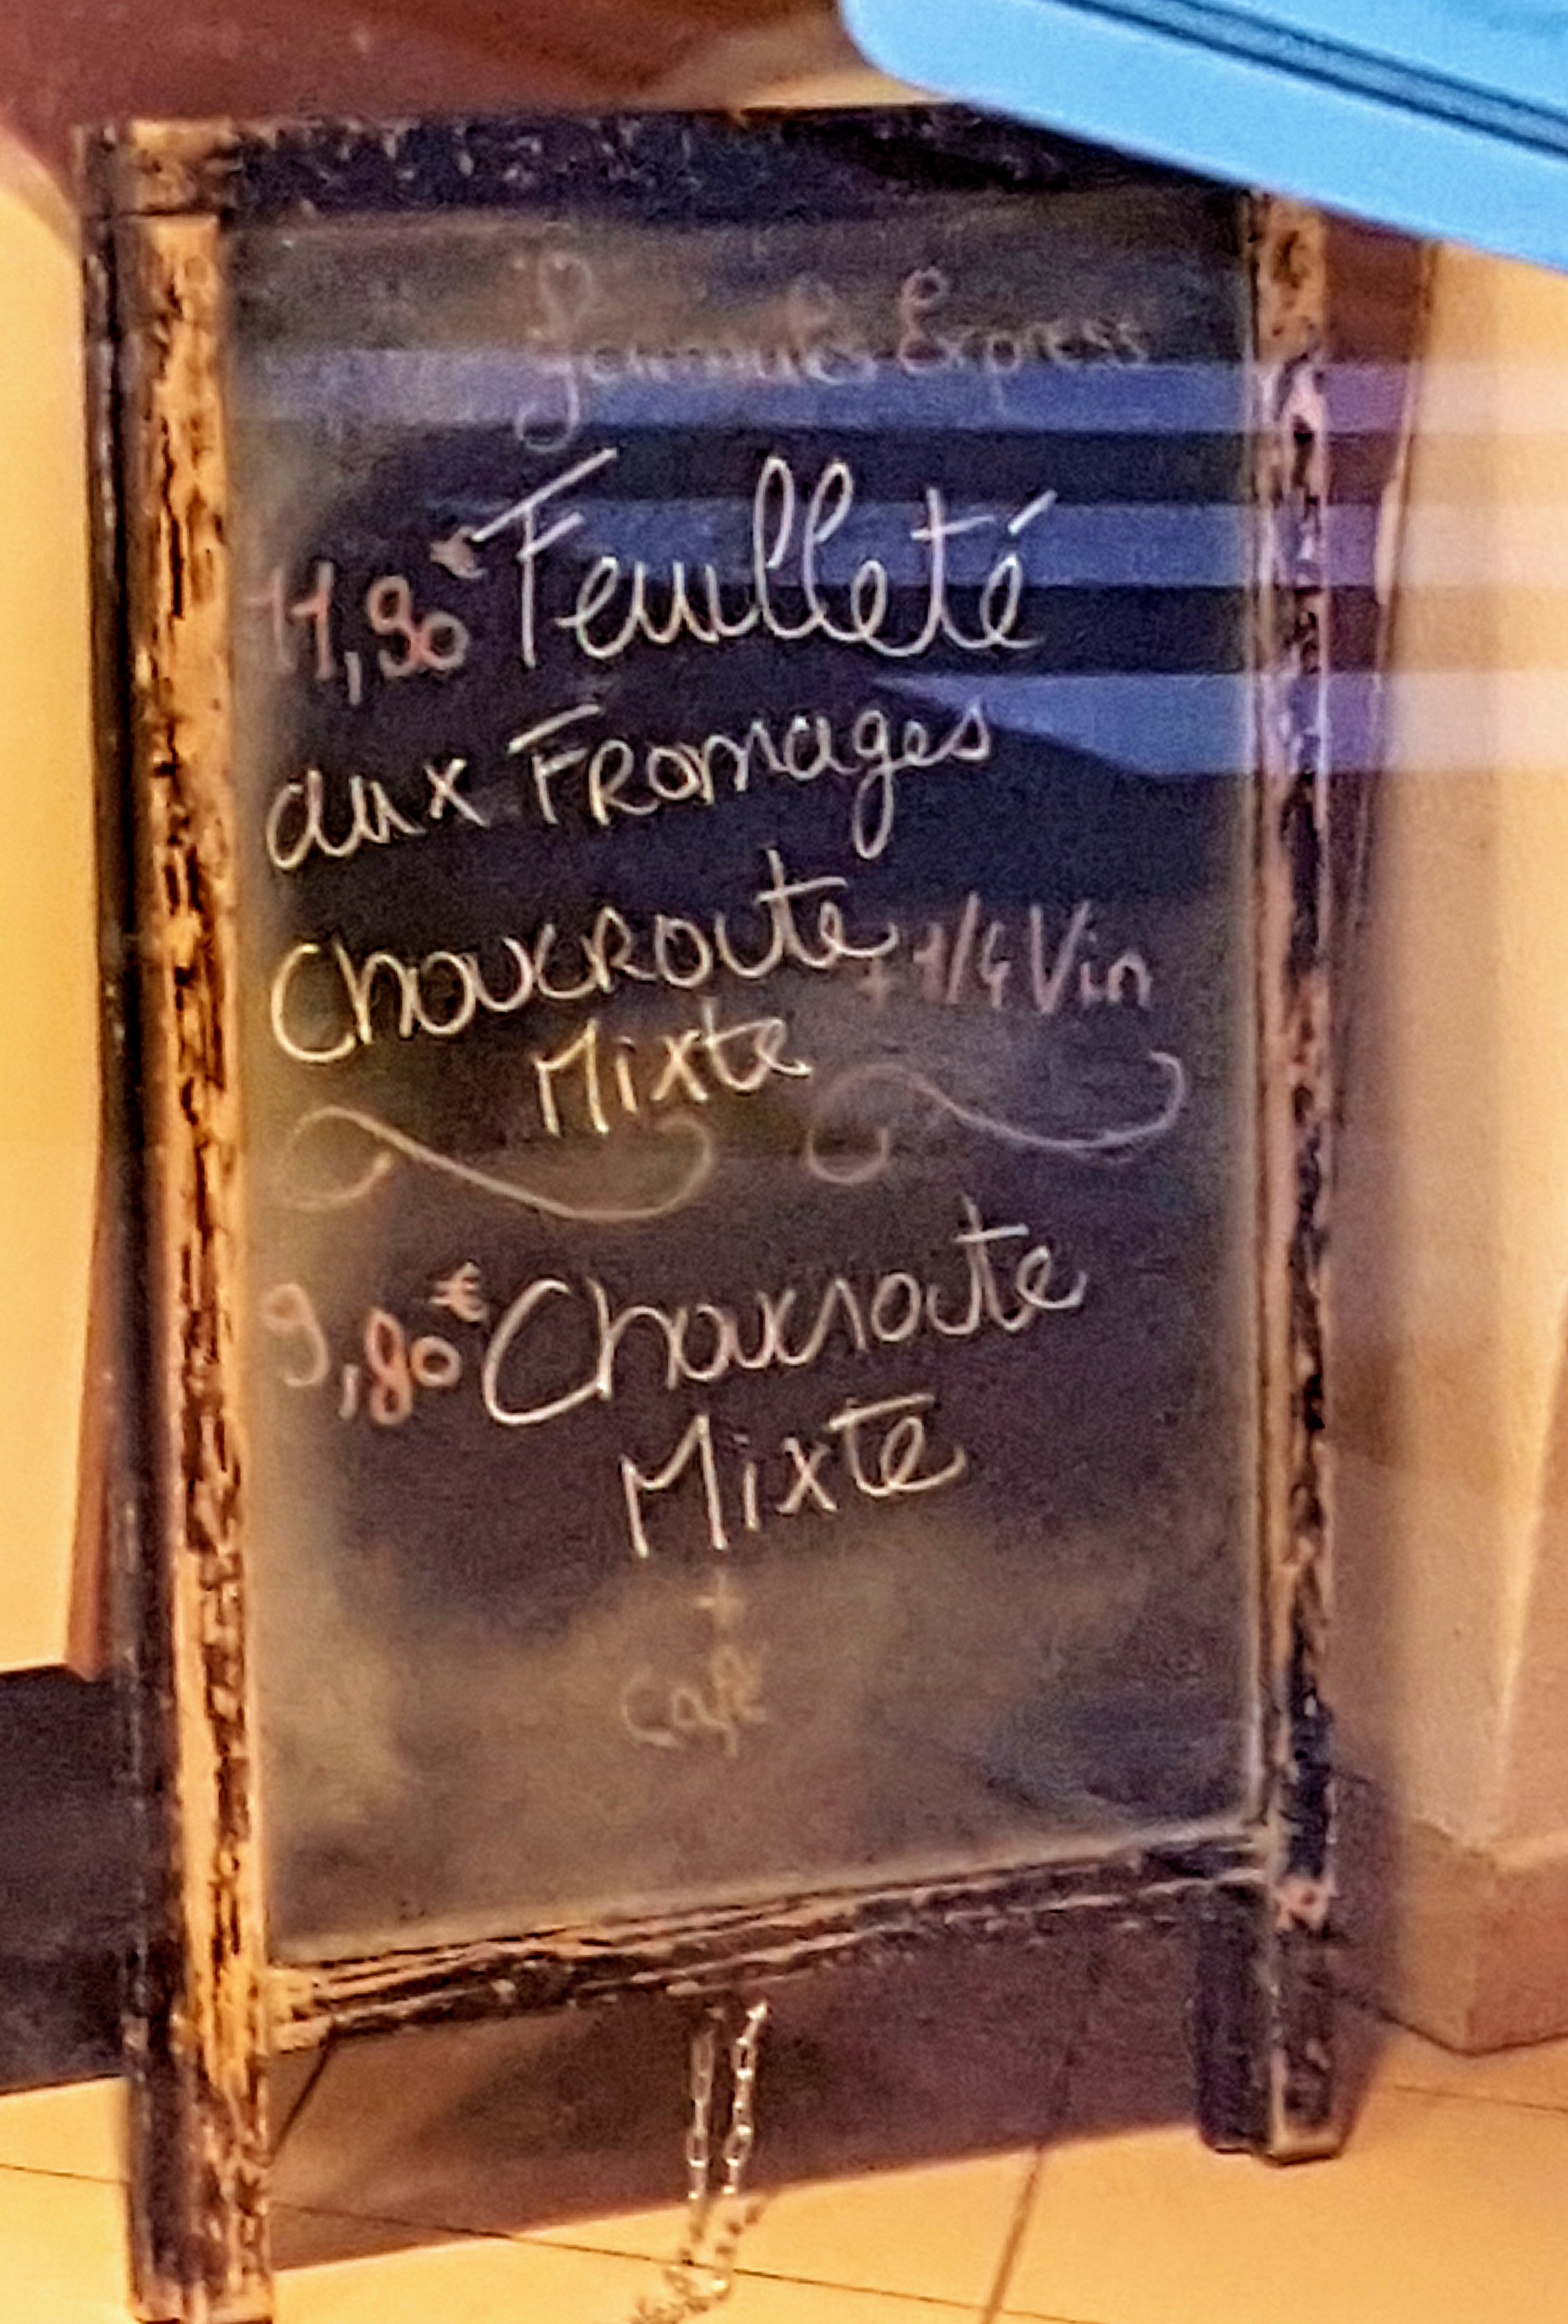 Formules Express
11,90€ Feuilleté
aux Fromages
Choucroute + 1/4 Vin
Mixte
9,80€ Choucroute
Mixte
+
Café